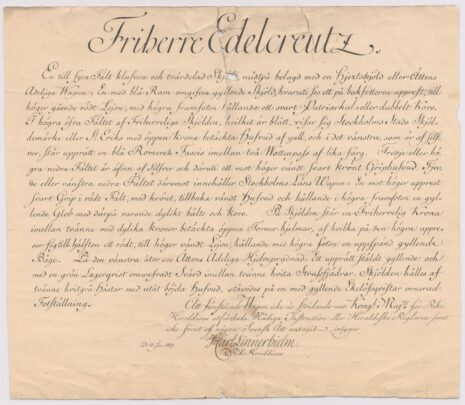 Friherre Edelcreutz.
En till fyra Fält klufven och tvärdelad Skjöld, midtpå belagd med en Hjertskjöld eller Ättens
Adeliga Wapen: En med blå Ram omgifven gyllende Skjöld, hvaruti ses ett på bakfötterne uppreſt, till
höger gående rödt Lejon, med högra framfoten hållande ett svart Patriarkal- eller dubbelt Kors.
I högra öfra Fältet af Friherreliga Skjölden, hvilket är blått, visar sig Stockholms Stads Skjöld-
märke eller St. Eriks med öppen Krona betäckta Hufvud af gull, och i det vänstra, som är af silf-
ver, står upprätt en blå Romersk Fascis imellan två Wattenpass af lika färg. Tredje eller hö-
gra nedra Fältet är äfven af Silfver och däruti ett mot höger vändt svart krönt Griphufvud. Fjer-
de eller vänstra nedra Fältet däremot innehåller Stockholms Läns Wapen: En mot höger uppreſt
svart Grip i rödt Fält, med krönt, tillbaka vändt Hufvud och hållande i högra, framfoten en gyl-
lende Glob med därpå varande dylikt bälte och Kors. På Skjölden står en Friherrelig Krona
imellan tvänne med dylika kronor betäckta öppna Torner-hjelmar, af hvilka på den högra uppre-
ser sig till hälften ett rödt, till höger vändt Lejon, hållande med högra foten en uppspänd gyllende
Båge. På den vänstra åter ses Ättens Adeliga Hjelmprydnad: Ett upprätt stäldt gyllende och
med en grön Lagerqvist omvefvadt Svärd imellan tvänne hvita Strussfjädrar. Skjölden hålles af
tvänne hvitgrå Hästar med utåt böjda Hufvud, ståendes på en med gyllende Ekelöfsqvistar ornerad
Fotställning.
Att förestående Wapen icke är stridande mot Kongl. Majts för Riks
Heraldicus utfärdade Nådiga Instruction eller Heraldiska Reglorne samt
icke förut af någon Svensk Ätt antagit, intygar
Carl Linnerhielm
Riks Heraldicus.